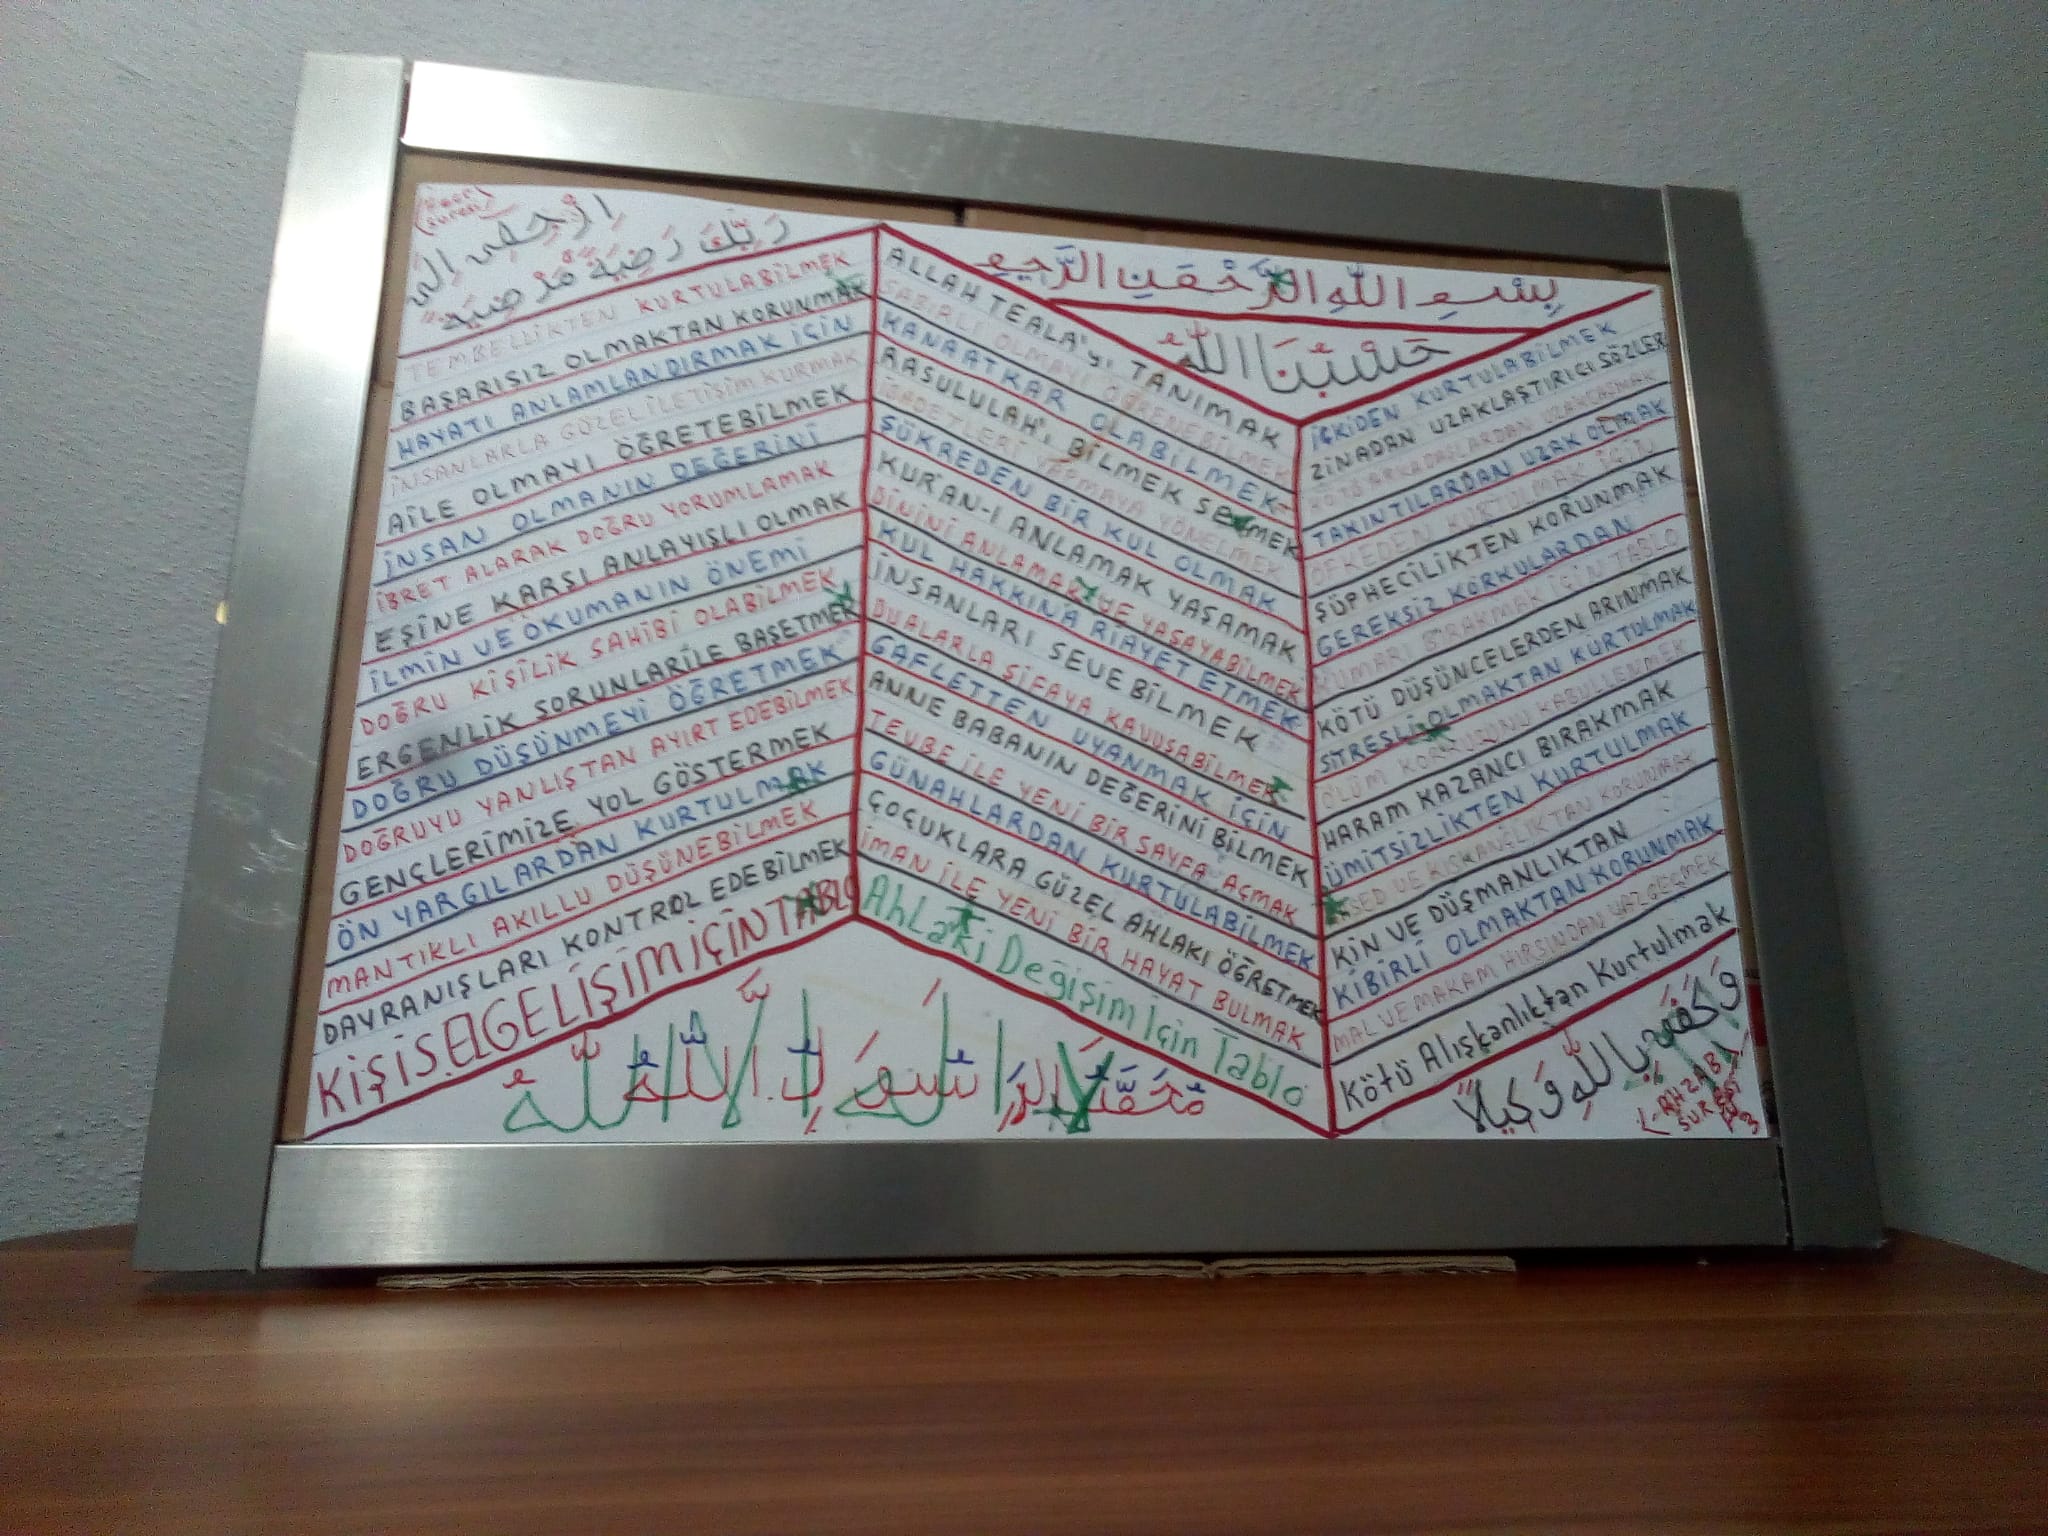 (Fecr
Suresi)
اِرْجِعِى اِلٰى
رَبِّكَ رَضِيَةً مَرْضِيَةً
TEMBELLİKTEN KURTULABİLMEK
BAŞARISIZ OLMAKTAN KORUNMAK
HAYATI ANLAMLANDIRMAK İÇİN
İNSANLARLA GÜZEL İLETİŞİM KURMAK
AİLE OLMAYI ÖĞRETEBİLMEK
İNSAN OLMANIN DEĞERİNİ
İBRET ALARAK DOĞRU YORUMLAMAK
EŞİNE KARŞI ANLAYIŞLI OLMAK
İLMİN VE OKUMANIN ÖNEMİ
DOĞRU KİŞİLİK SAHİBİ OLABİLMEK
ERGENLİK SORUNLARILE BAŞETMEK
DOĞRU DÜŞÜNMEYİ ÖĞRETMEK
DOĞRUYU YANLIŞTAN AYIRT EDEBİLMEK
GENÇLERİMİZE YOL GÖSTERMEK
ÖN YARGILARDAN KURTULMAK
MANTIKLI AKILLU DÜŞÜNEBİLMEK
DAVRANIŞLARI KONTROL EDEBİLMEK
KİŞİSEL GELİŞİM İÇİN TABLO
بِسْمِ اللّٰهِ الرَّحْمٰنِ الرَّحِيمِ
حَسْبُنَا اللّٰهُ
ALLAH TEALA'yı TANIMAK
SABIRLI OLMAYI ÖĞRENEBİLMEK
KANAATKAR OLABİLMEK
RASULULAH'ı BİLMEK SEVMEK
İBADETLERİ YAPMAYA YÖNELMEK
ŞÜKREDEN BİR KUL OLMAK
KUR'AN-I ANLAMAK YAŞAMAK
DİNİNİ ANLAMAK VE YAŞAYABİLMEK
KUL HAKKINA RİAYET ETMEK
İNSANLARI SEVEBİLMEK
DUALARLA ŞİFAYA KAVUŞABİLMEK
GAFLETTEN UYANMAK İÇİN
ANNE BABANIN DEĞERİNİ BİLMEK
TEVBE İLE YENİ BİR SAYFA AÇMAK
GÜNAHLARDAN KURTULABİLMEK
ÇOÇUKLARA GÜZEL AHLAKI ÖĞRETMEK
İMAN İLE YENİ BİR HAYAT BULMAK
Ahlaki Değişim İçin Tablo
İÇKİDEN KURTULABİLMEK
ZİNADAN UZAKLAŞTIRICI SÖZLER
KÖTÜ ARKADAŞLARDAN UZAKLAŞMAK
TAKINTILARDAN UZAK OLMAK
ÖFKEDEN KURTULMAK İÇİN
ŞÜPHECİLİKTEN KORUNMAK
GEREKSİZ KORKULARDAN
KUMARI BIRAKMAK İÇİN TABLO
KÖTÜ DÜŞÜNCELERDEN ARINMAK
SİTRESLİ OLMAKTAN KURTULMAK
ÖLÜM KORUSUNU KABULLENMEK
HARAM KAZANCI BIRAKMAK
ÜMİTSİZLİKTEN KURTULMAK
HASED VE KISKANÇLIKTAN KORUNMAK
KİN VE DÜŞMANLIKTAN
KİBİRLİ OLMAKTAN KORUNMAK
MAL VE MAKAM HIRSINDAN VAZGEÇMEK
Kötü Alışkanlıktan Kurtulmak
وَكَفٰى بِاللّٰهِ وَكِيلًا
AHZAB
SURESİ
3